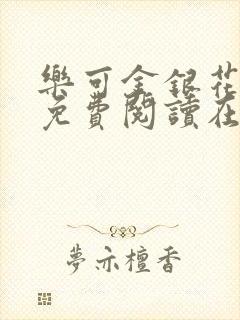 樂可金銀花
免費閱讀在
夢亦檀香